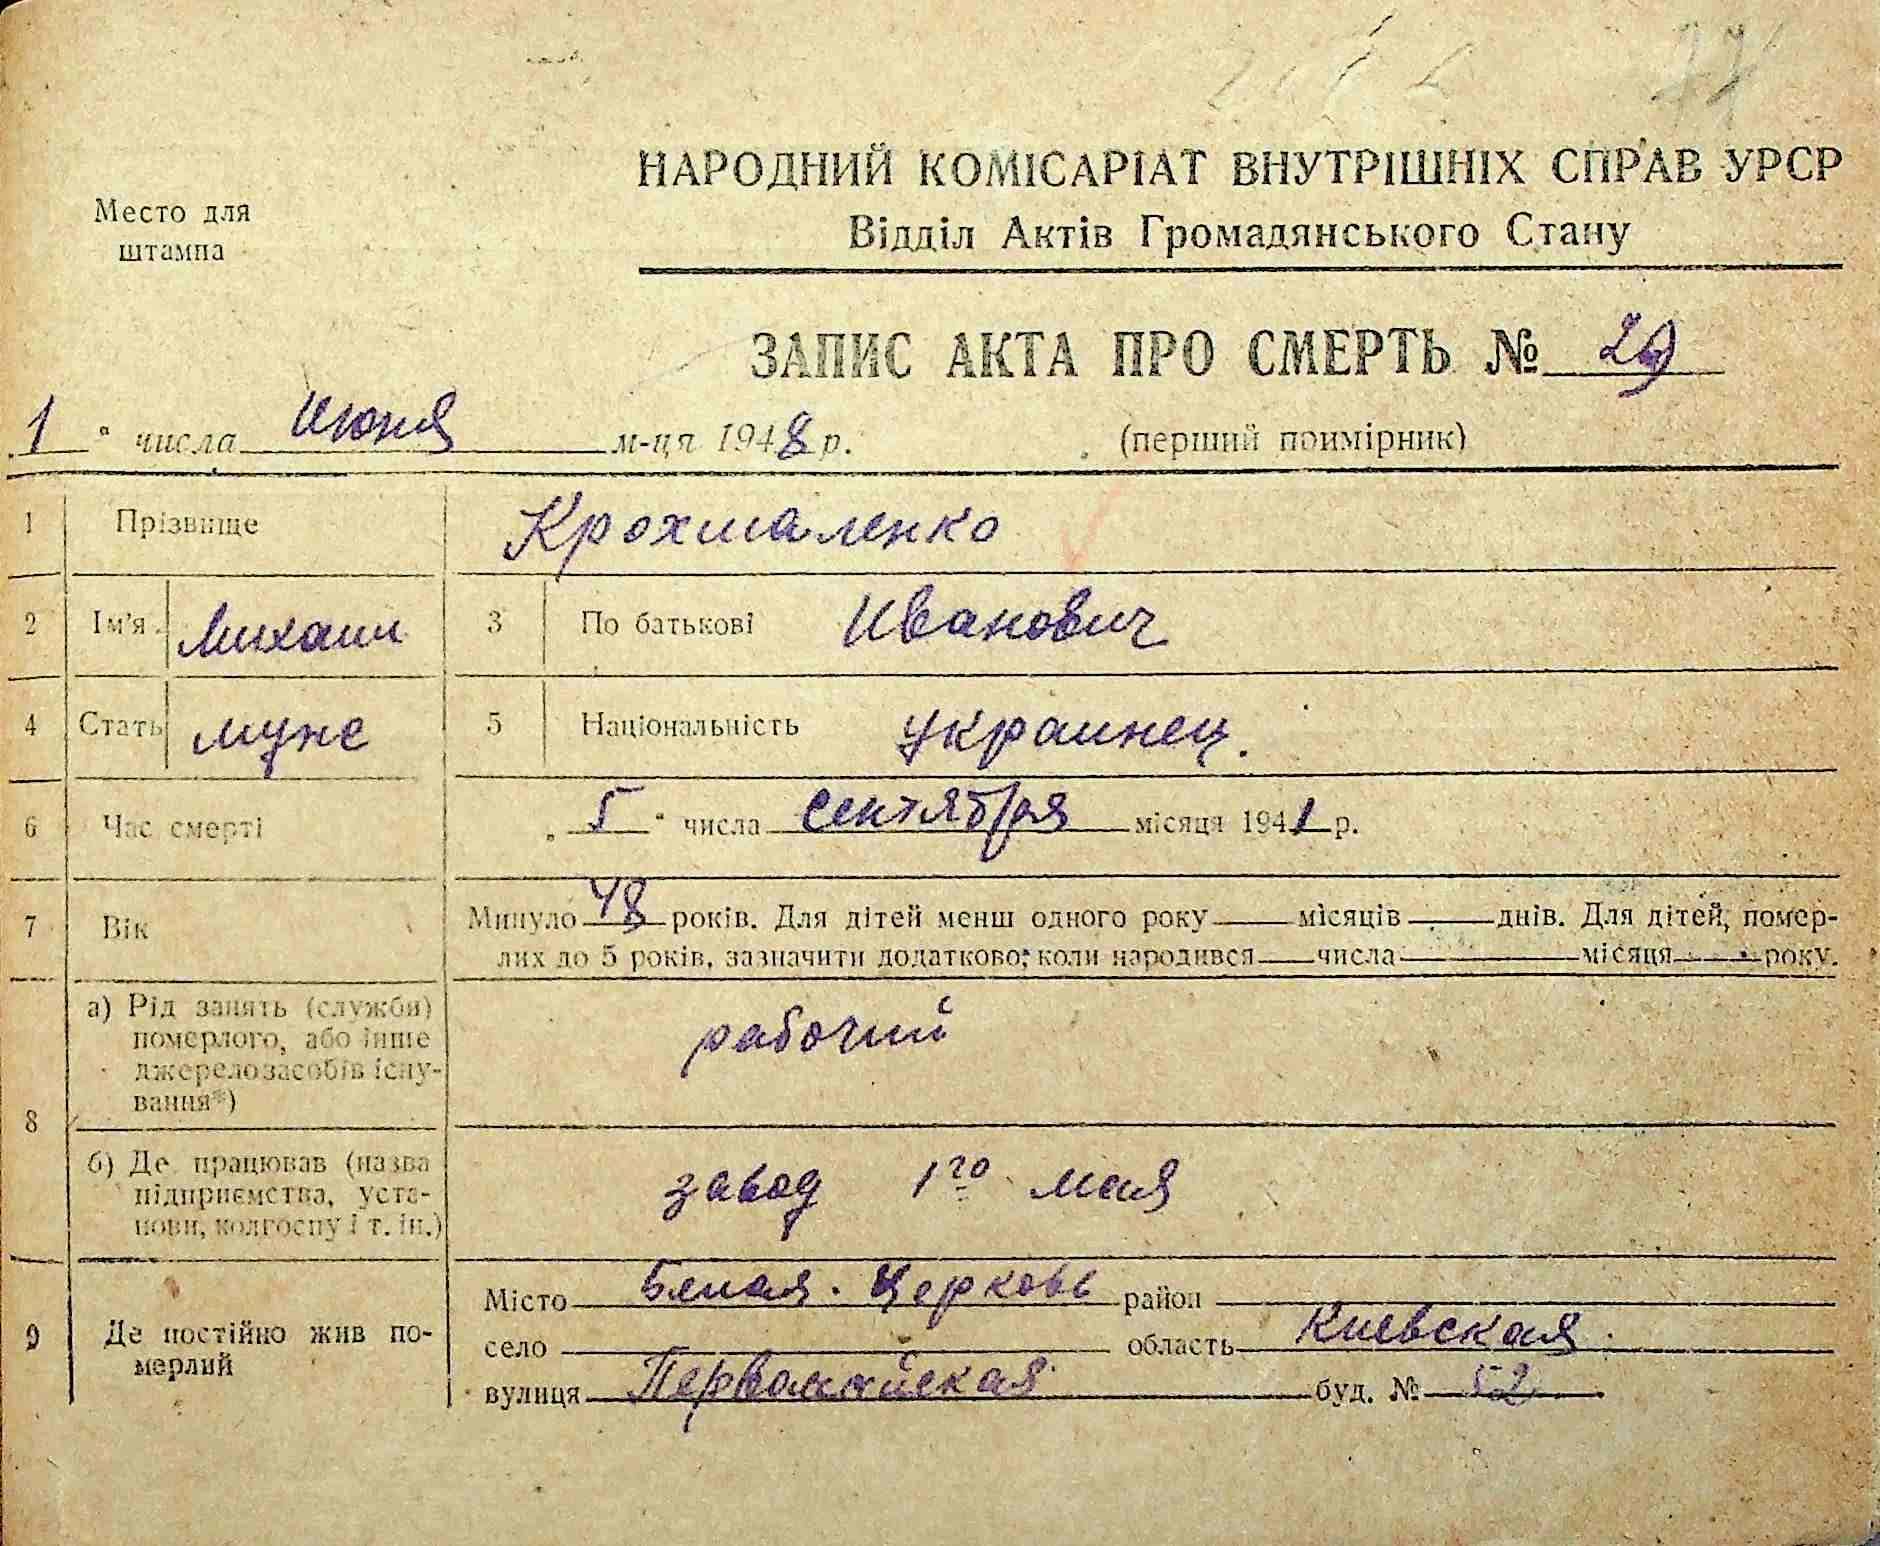 НАРОДНИЙ КОМІСАРІАТ ВНУТРІШНІХ СПРАВ УРСР
Место для
штампа
Відділ Актів Громадянського Стану
ЗАПИС АКТА ПРО СМЕРТЬ № 29
1 " числа июня м-ця 1948 р. (перший поимірник)
1 Прізвище Крохмаленко
2 Ім'я Михаил 3 По батькові Иванович
4 Стать муже 5 Національність украинец.
6 Час смерті „ 5 " числа сентября місяця 1941 р.
7 Вік Минуло 48 років. Для дітей менш одного року місяців днів. Для дітей, помер-
лих до 5 років, зазначити додатково; коли народився числа місяця року.
8 а) Рід занять (служби)
померлого, або інше
джерелозасобів існу-
вання*)
рабочий
б) Де працював (назва
підприємства, уста-
нови, колгоспу і т. ін.)
завод 1го мая
9 Де постійно жив по-
мерлий
Місто Белая. Церковь район
село область Киевская.
вулиця Первомайская буд. № 52